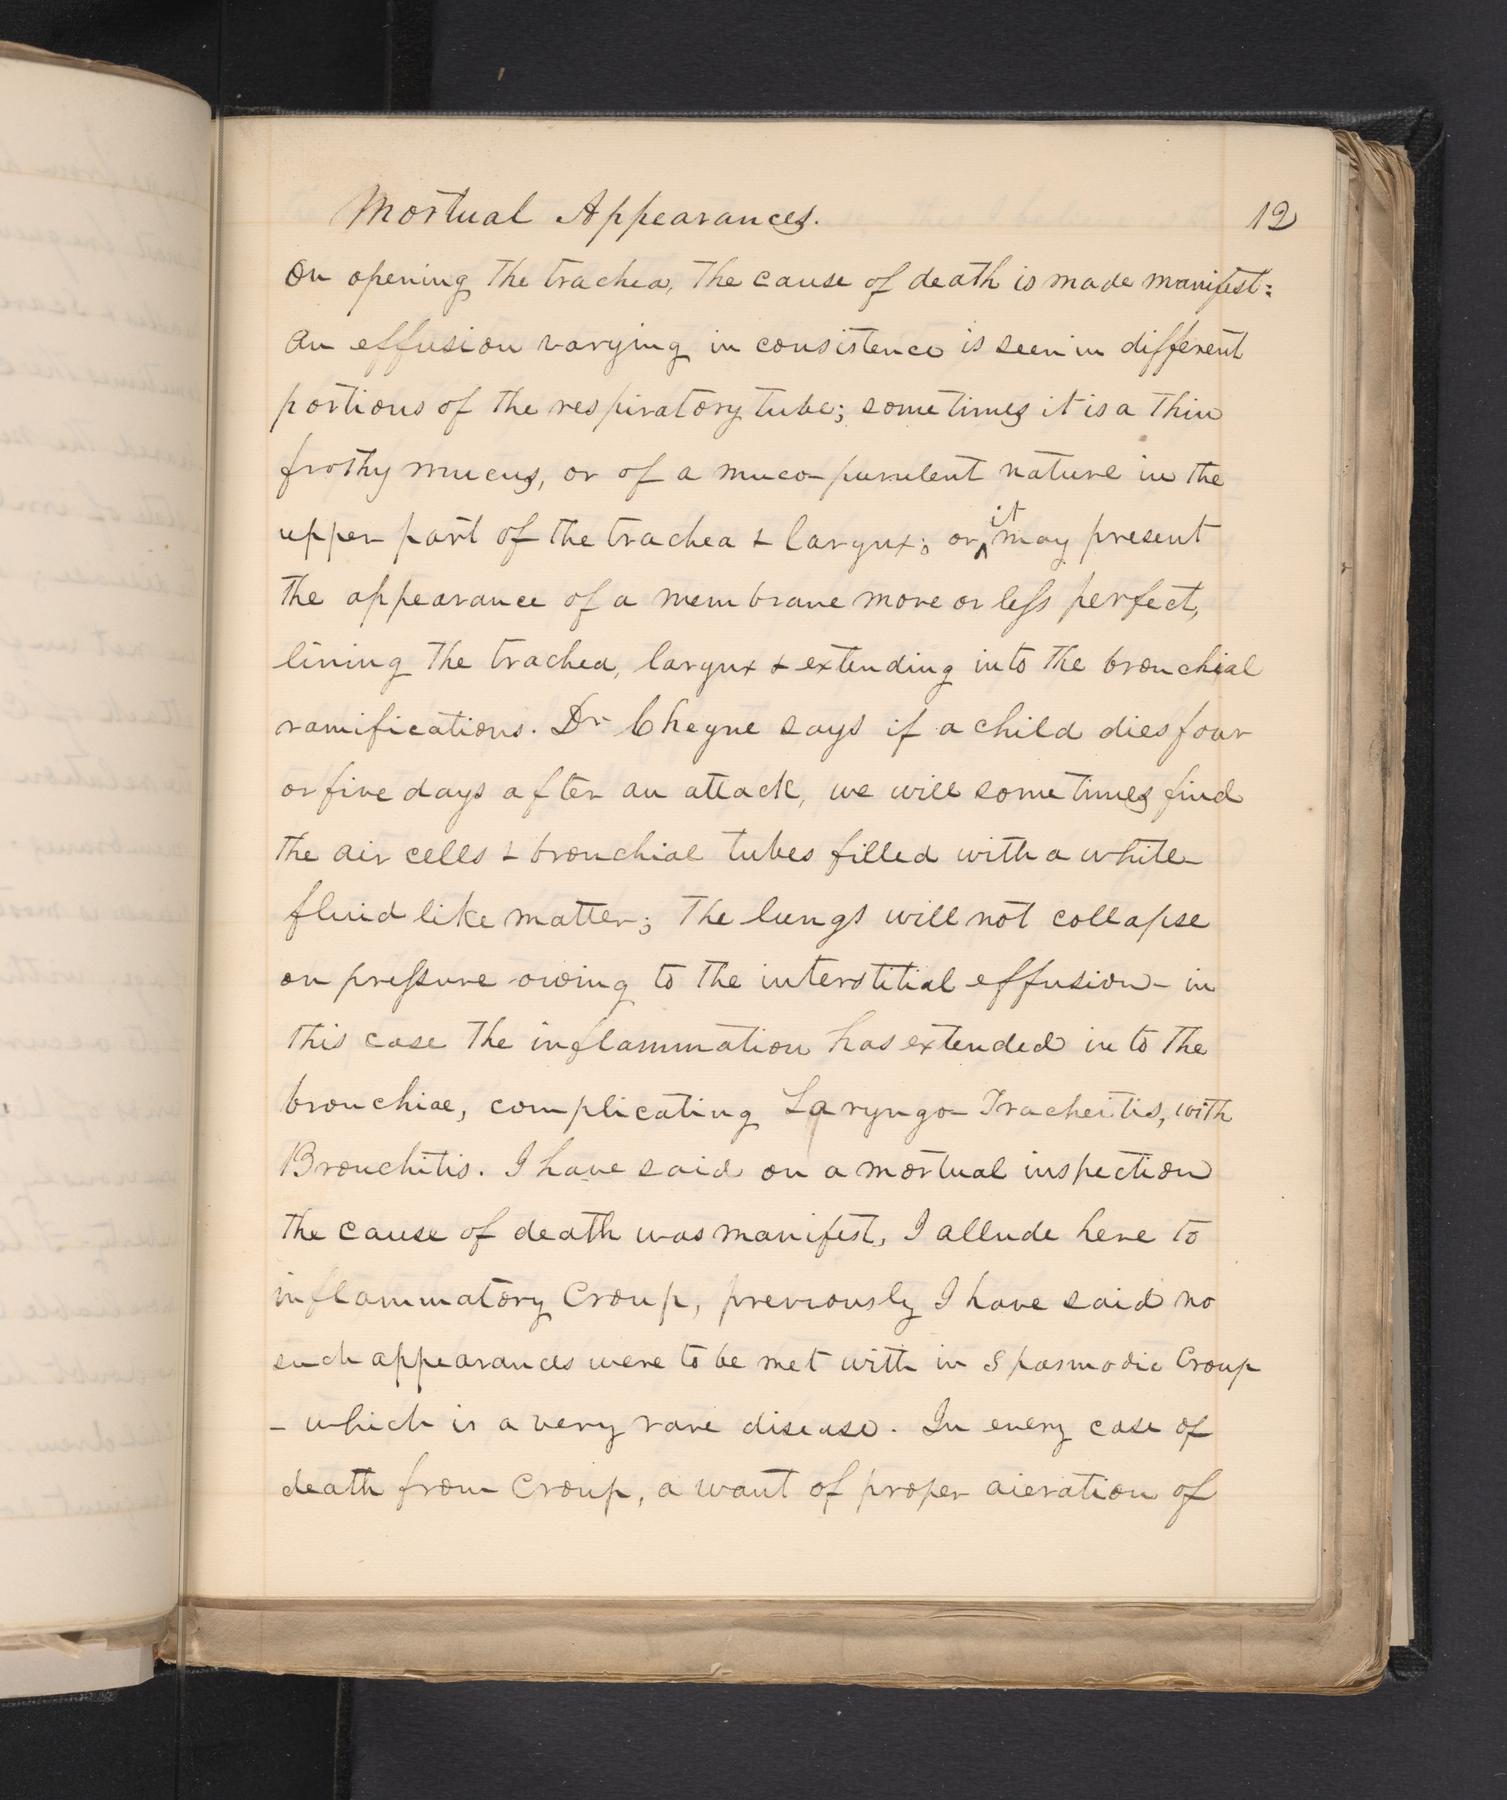 Mortual Appearances. 12
On opening the trachea, the cause of death is made manifest:
An effusion varying in consistence is seen in different
portions of the respiratory tube; sometimes it is a thin
frothy mucus, or of a muco-purulent nature in the
upper part of the trachea & larynx; or it may present
the appearance of a membrane more or less perfect,
lining the trachea, larynx & extending into the bronchial
ramifications. Dr Cheyne says if a child dies four
or five days after an attack, we will sometimes find
the air cells & bronchial tubes filled with a white
fluid like matter; the lungs will not collapse
on pressure owing to the interstitial effusion - in
this case the inflammation has extended in to the
bronchiae, complicating Laryngo-Tracheitis, with
Bronchitis. I have said on a mortual inspection
the cause of death was manifest, I allude here to
inflammatory Croup, previously I have said no
such appearances were to be met with in Spasmodic Croup
- which is a very rare disease. In every case of
death from Croup, a want of proper aieration of